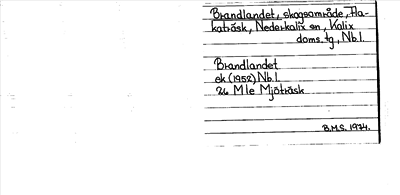 Brandlandet, skogsområde, Fla-
katräsk, Nederkalix sn, Kalix
doms.tg, Nb.l.
Brandlandet
ek (1952) Nb.l.
26 M le Mjöträsk
B.M.S. 1974.